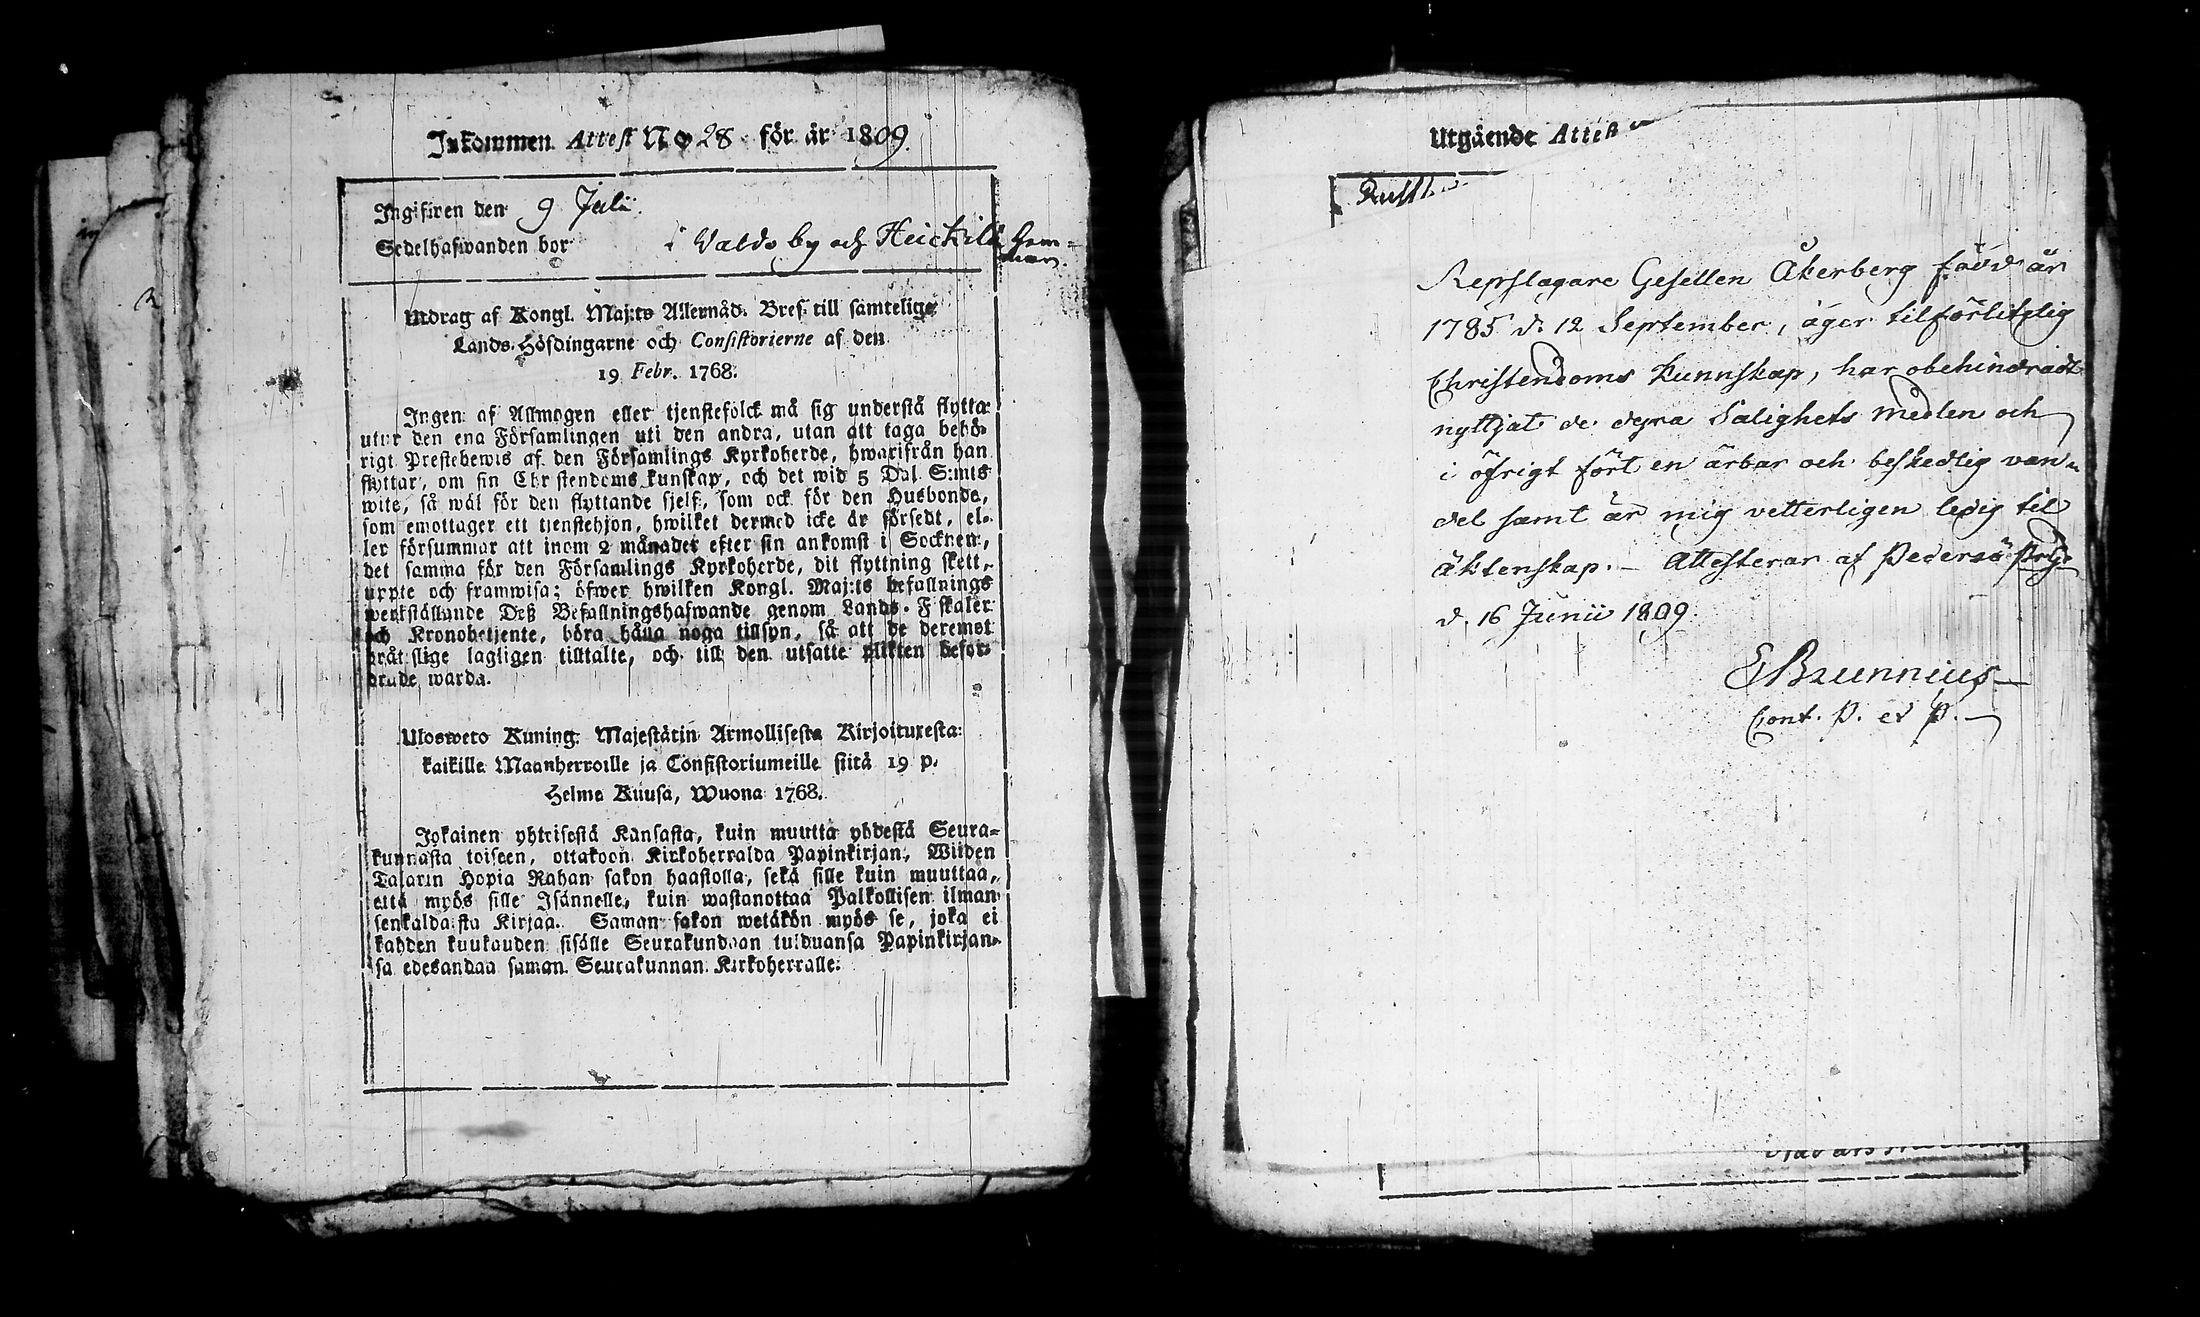 Inkommen Attest No 28 för år 1809.
Ingifwen den 9 Juli.
Sedelhafwanden bor i Valdo by och Heickilä hem=
man.
Utdrag af Kongl. Maj:ts Allernåd. Bref till samtelige
Lands-Höfdingarne och Consistorierne af den
19 Febr. 1768.
Ingen af Allmogen eller tjenstefolck må sig understå flytta
utur den ena Församlingen uti den andra, utan att taga behö-
rigt Prestebewis af den Församlings Kyrkoherde, hwarifrån han
flyttar, om sin Christendoms kunskap, och det wid 5 Dal. S:mts
wite, så wäl för den flyttande sjelf, som ock för den Husbonde,
som emottager ett tjenstehjon, hwilket dermed icke är försedt, el-
ler försummar att inom 2 månader efter sin ankomst i Socknen,
det samma för den Församlings Kyrkoherde, dit flyttning skett,
uppte och framwisa; öfwer hwilken Kongl. Maj:ts befallnings
werkställande Deß Befallningshafwande genom Lands-Fiskaler
och Kronobetjente, böra hålla noga tillsyn, så att de deremot
bråtslige lagligen tilltalte, och till den utsatte plikten befor-
drade warda.
Ulosweto Kuning. Majestätin Armollisesta Kirjoituxesta
kaikille Maanherroille ja Consistoriumeille siitä 19 p.
Helme Kuusa, Wuona 1768.
Jokainen yhteisestä Kansasta, kuin muutta yhdestä Seura-
kunnasta toiseen, ottakoon Kirkoherralda Papinkirjan, Wiiden
Talarin Hopia Rahan sakon haastolla, sekä sille kuin muuttaa,
että myös sille Isännelle, kuin wastanottaa Palkollisen ilman
senkaldaista Kirjaa. Saman sakon wetäkön myös se, joka ei
kahden kuukauden sisälle Seurakundaan tulduansa Papinkirjan-
sa edesandaa saman Seurakunnan Kirkoherralle.
Utgående Attest
Repslagare Gesellen Åkerberg född är
1785 d. 12 September, äger tilförlitelig
Christendoms Kunnskap, har obehindradt
nyttjat de dyra Salighets medlen och
i öfrigt fört en ärbar och beskedlig van-
del samt är mig vetterligen ledig til
äktenskap. – Attesterar af Pedersö
d. 16 Junii 1809.
E Brunnius
Cont. P. et P.